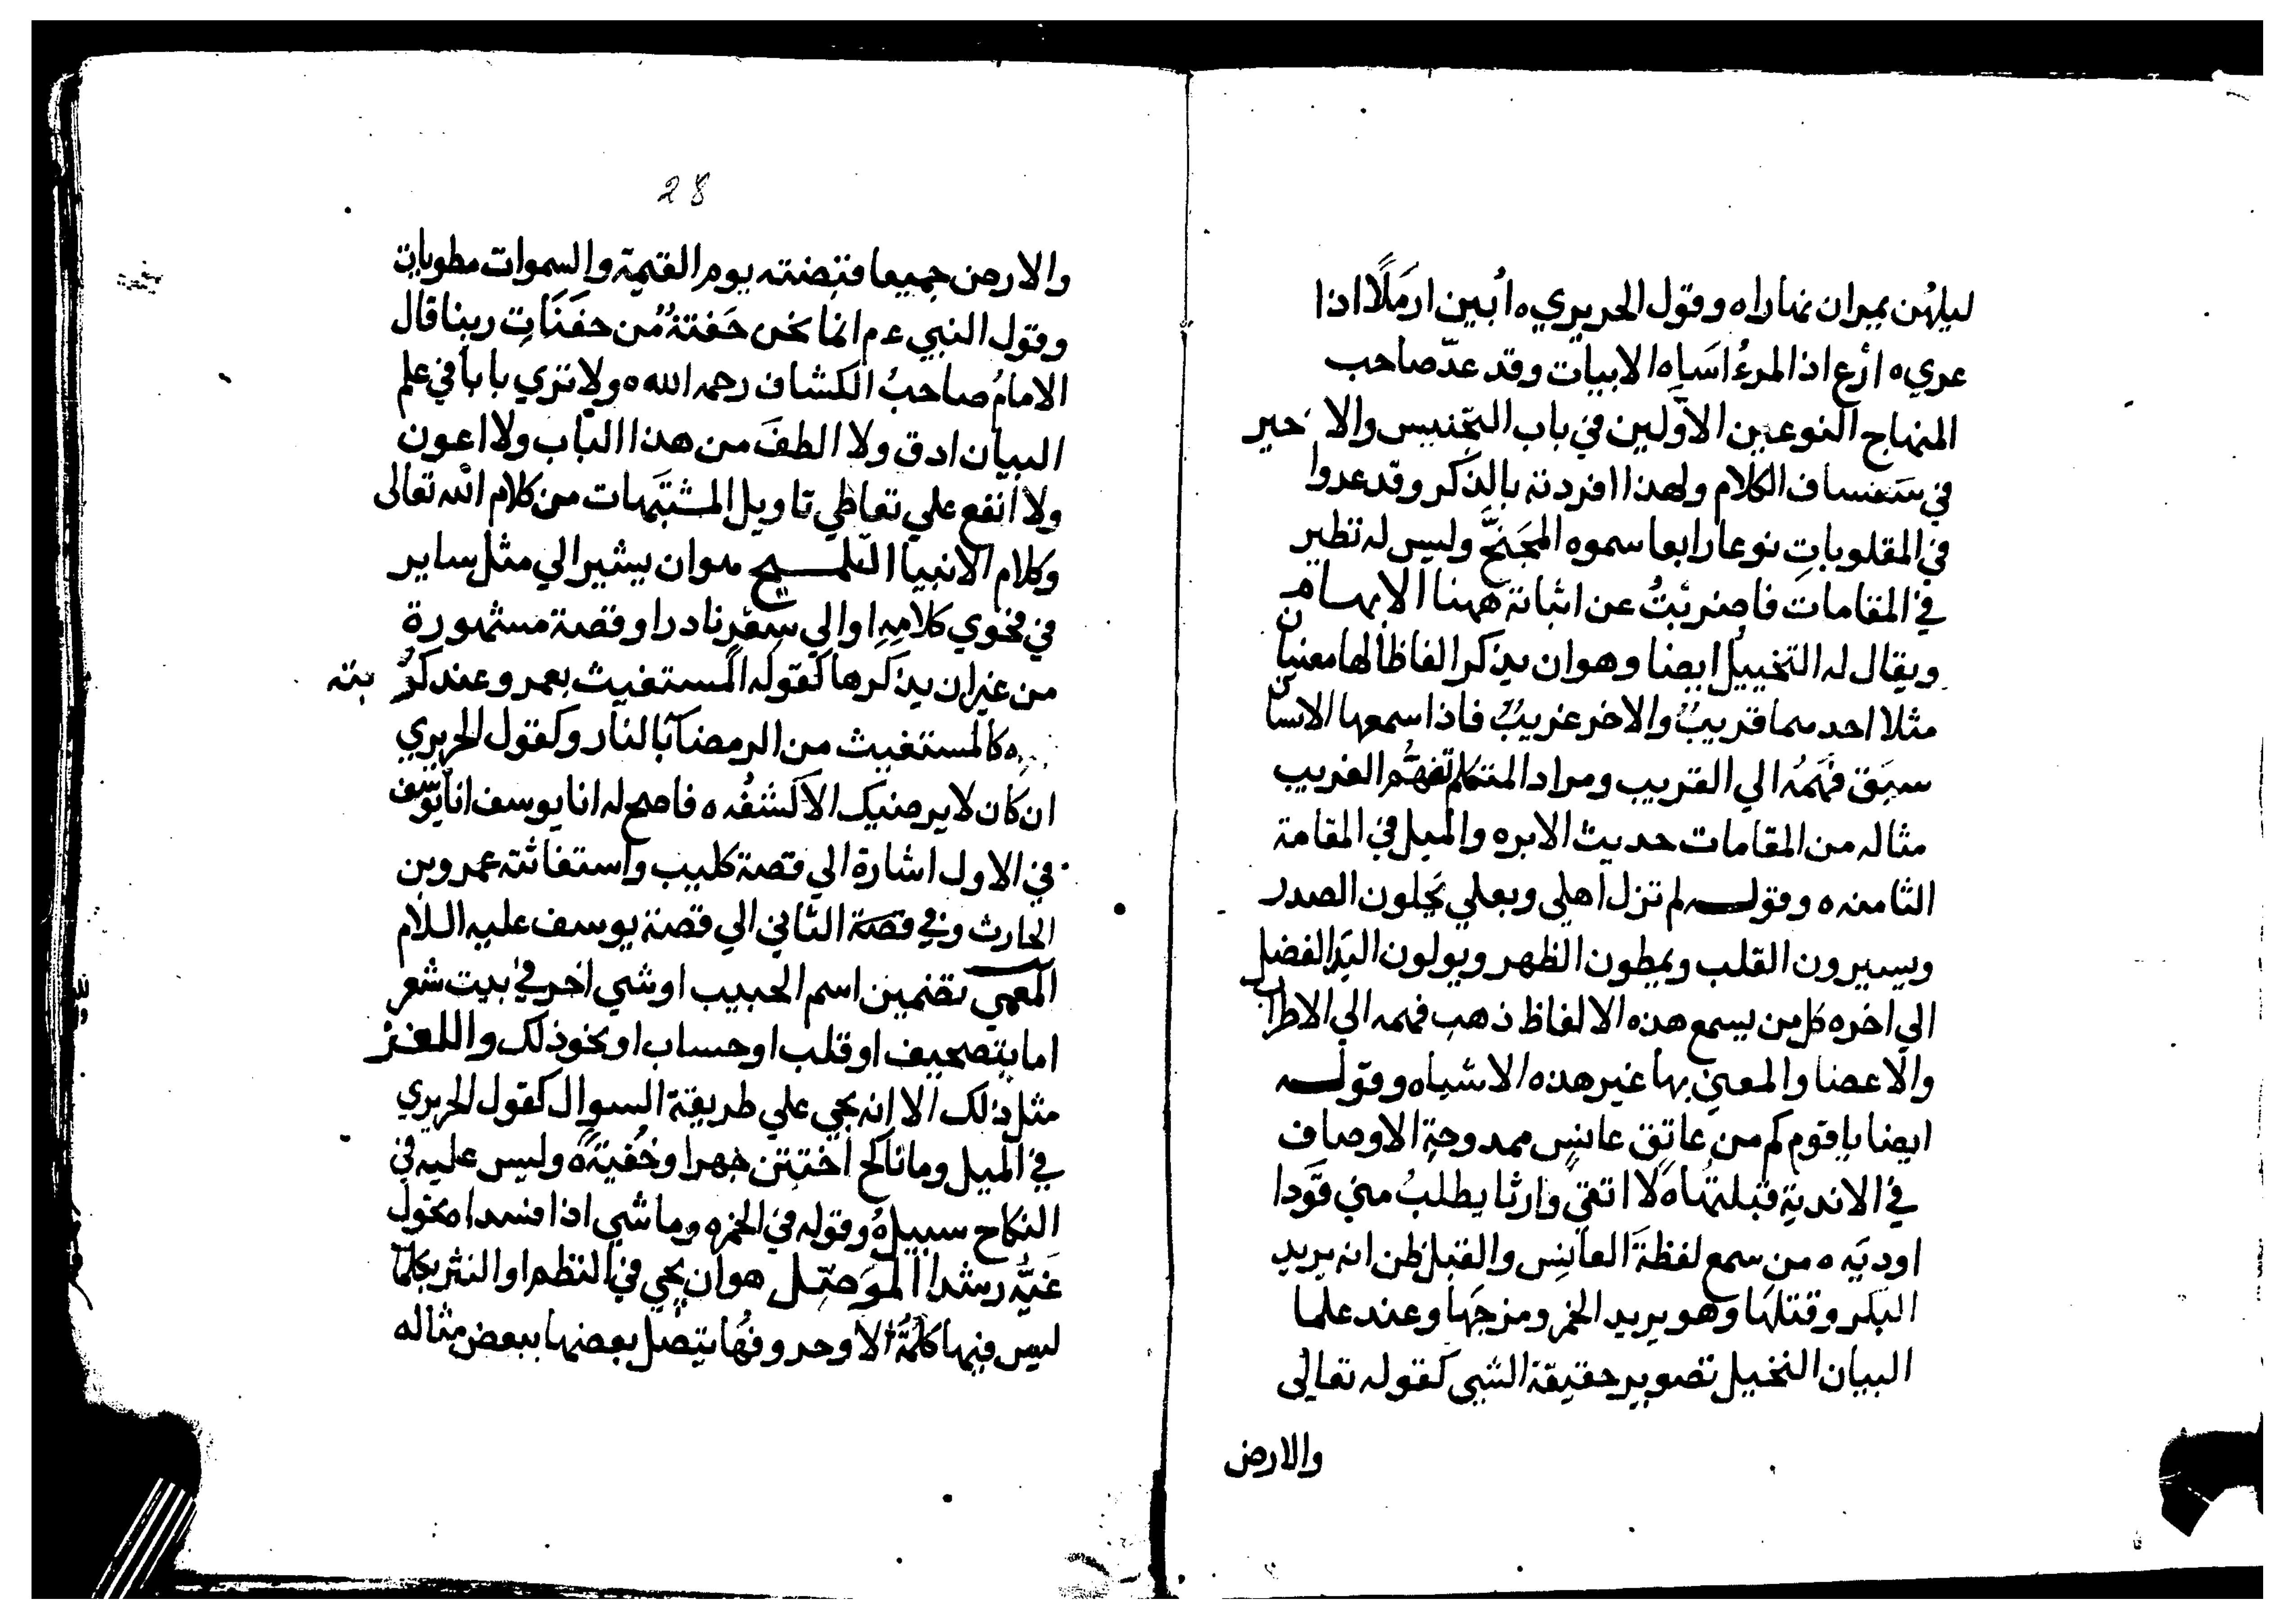 ليلهن بميران نهاراه وقول الحريري ه أبين ارملًا اذا
عري ه أرع اذ المرءُ اسَاه الابيات وقد عدّ صاحب
المنهاج النوعين الاوّلين في باب التجنيس والاخير
في الكلام ولهذا افردته بالذكر وقد عدوا
في المقلوبات نوعا رابعا سموه المجَنَّح وليس له نظير
في المقامات فاضربتُ عن اثباته ههنا الابهام
ويقال له التخييل ايضا وهو ان يذكر الفاظا لها معنيان
مثلا احدهما قريبٌ والاخر غريبٌ فاذا سمعها الانسان
سبَق فهمُه الي القريب ومراد المتكلم تفهُّم الغريب
مثاله من المقامات حديث الابره والميل في المقامة
الثامنه ه وقولـــه لم تزل اهلي وبعلي يحلون الصدر
ويسيرون القلب ويمطون الظهر ويولون اليد الفضل
الي اخره كل من يسمع هذه الالفاظ ذهب فهمه الي الاطراف
والاعضا والمعني بها غير هذه الاشياه وقولـــه
ايضا ياقوم كم من عاتق عانسٍ ممدوحة الاوصاف
في الاندية قبلتُها ه لا اتقي وارثا يطلبُ مني قوَدا
اوديَه ه من سمع لفظة العانِس والقتل ظن انه يريد
البكر وقتلها وهو يريد الخمر ومزجَها وعند علما
البيان التخيل تصوير حقيقة الشي كقوله تعالي
والارض
28
والارض جميعا قبضته يوم القيمة والسموات مطويات
وقول النبي ءم انما نحن حَفنةٌ مِن حفَنَاتِ ربنا قال
الامامُ صاحبُ الكشاف رحمه الله ه ولا تري بابا في علم
البيان ادق ولا الطفَ من هذا الباب ولا اعون
ولا انفع علي تعاطي تاويل المشتبَهات من كلام الله تعالى
وكلام الانبيا التلمـــيح هوان يشير الي مثل ساير
في فحوي كلامِه او الي شعرٍ نادر او قصة مشهورة
من غيران يذكرها كقوله المستغيث بعمرو عند كربته
ه كالمستغيث من الرمضآ بالنار وكقول الحريري
ان كان لا يرضيك الا كشفُه ه فاصح له انا يوسف انا يوسف
في الاول اشارة الي قصة كليب واستغاثته عمرو بن
الحارث وفي قصة الثاني الي قصة يوسف عليه اللام
المعمي تضمين اسم الحبيب او شي اخر في بيت شعر
اما بتصحيف او قلب او حساب او نحو ذلك واللغز
مثل ذلك الا انه يجي علي طريقة السوال كقول الحريري
في الميل وما ناكح اختين جهرا وخُفيَةً ه وليس عليه في
النكاح سبيلُ ه وقوله في الخمر ه وما شي اذا فسدا ه تحول
غَيُّه رشدا الموَصِّـل هوان يجي في النظم او النثر بكلمات
ليس فيها كلمةٌ الا وحروفُها يتصل بعضها ببعض مثاله